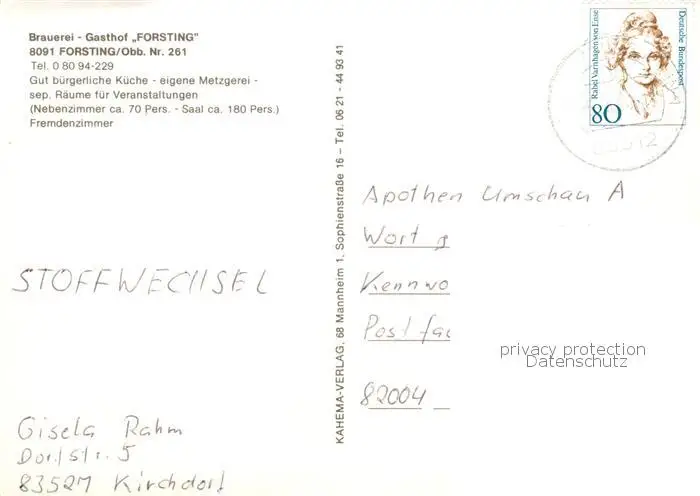 Brauerei - Gasthof „FORSTING"
8091 FORSTING/Obb. Nr. 261
Tel. 0 80 94-229
Gut bürgerliche Küche - eigene Metzgerei -
sep. Räume für Veranstaltungen
(Nebenzimmer ca. 70 Pers. - Saal ca. 180 Pers.)
Fremdenzimmer
STOFFWECHSEL
Gisela Rahm
Dorfstr. 5
83527 Kirchdorf
KAHEMA-VERLAG, 68 Mannheim 1, Sophienstraße 16 – Tel. 06 21 - 44 93 41
Rahel Varnhagen von Ense
Deutsche Bundespost
80
Apothen Umschau A
Wort
Kennwo
Postfac
82004
privacy protection
Datenschutz